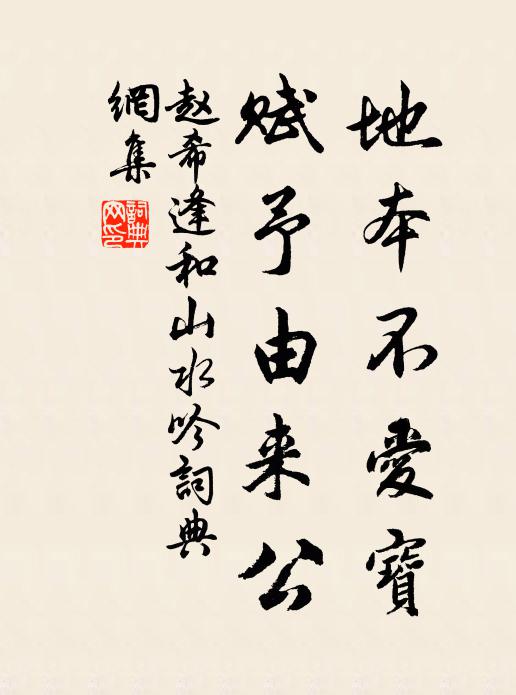 地本不愛寶
賦予由来公
赵希逢和山水吟詞典
網集
詞典
网印